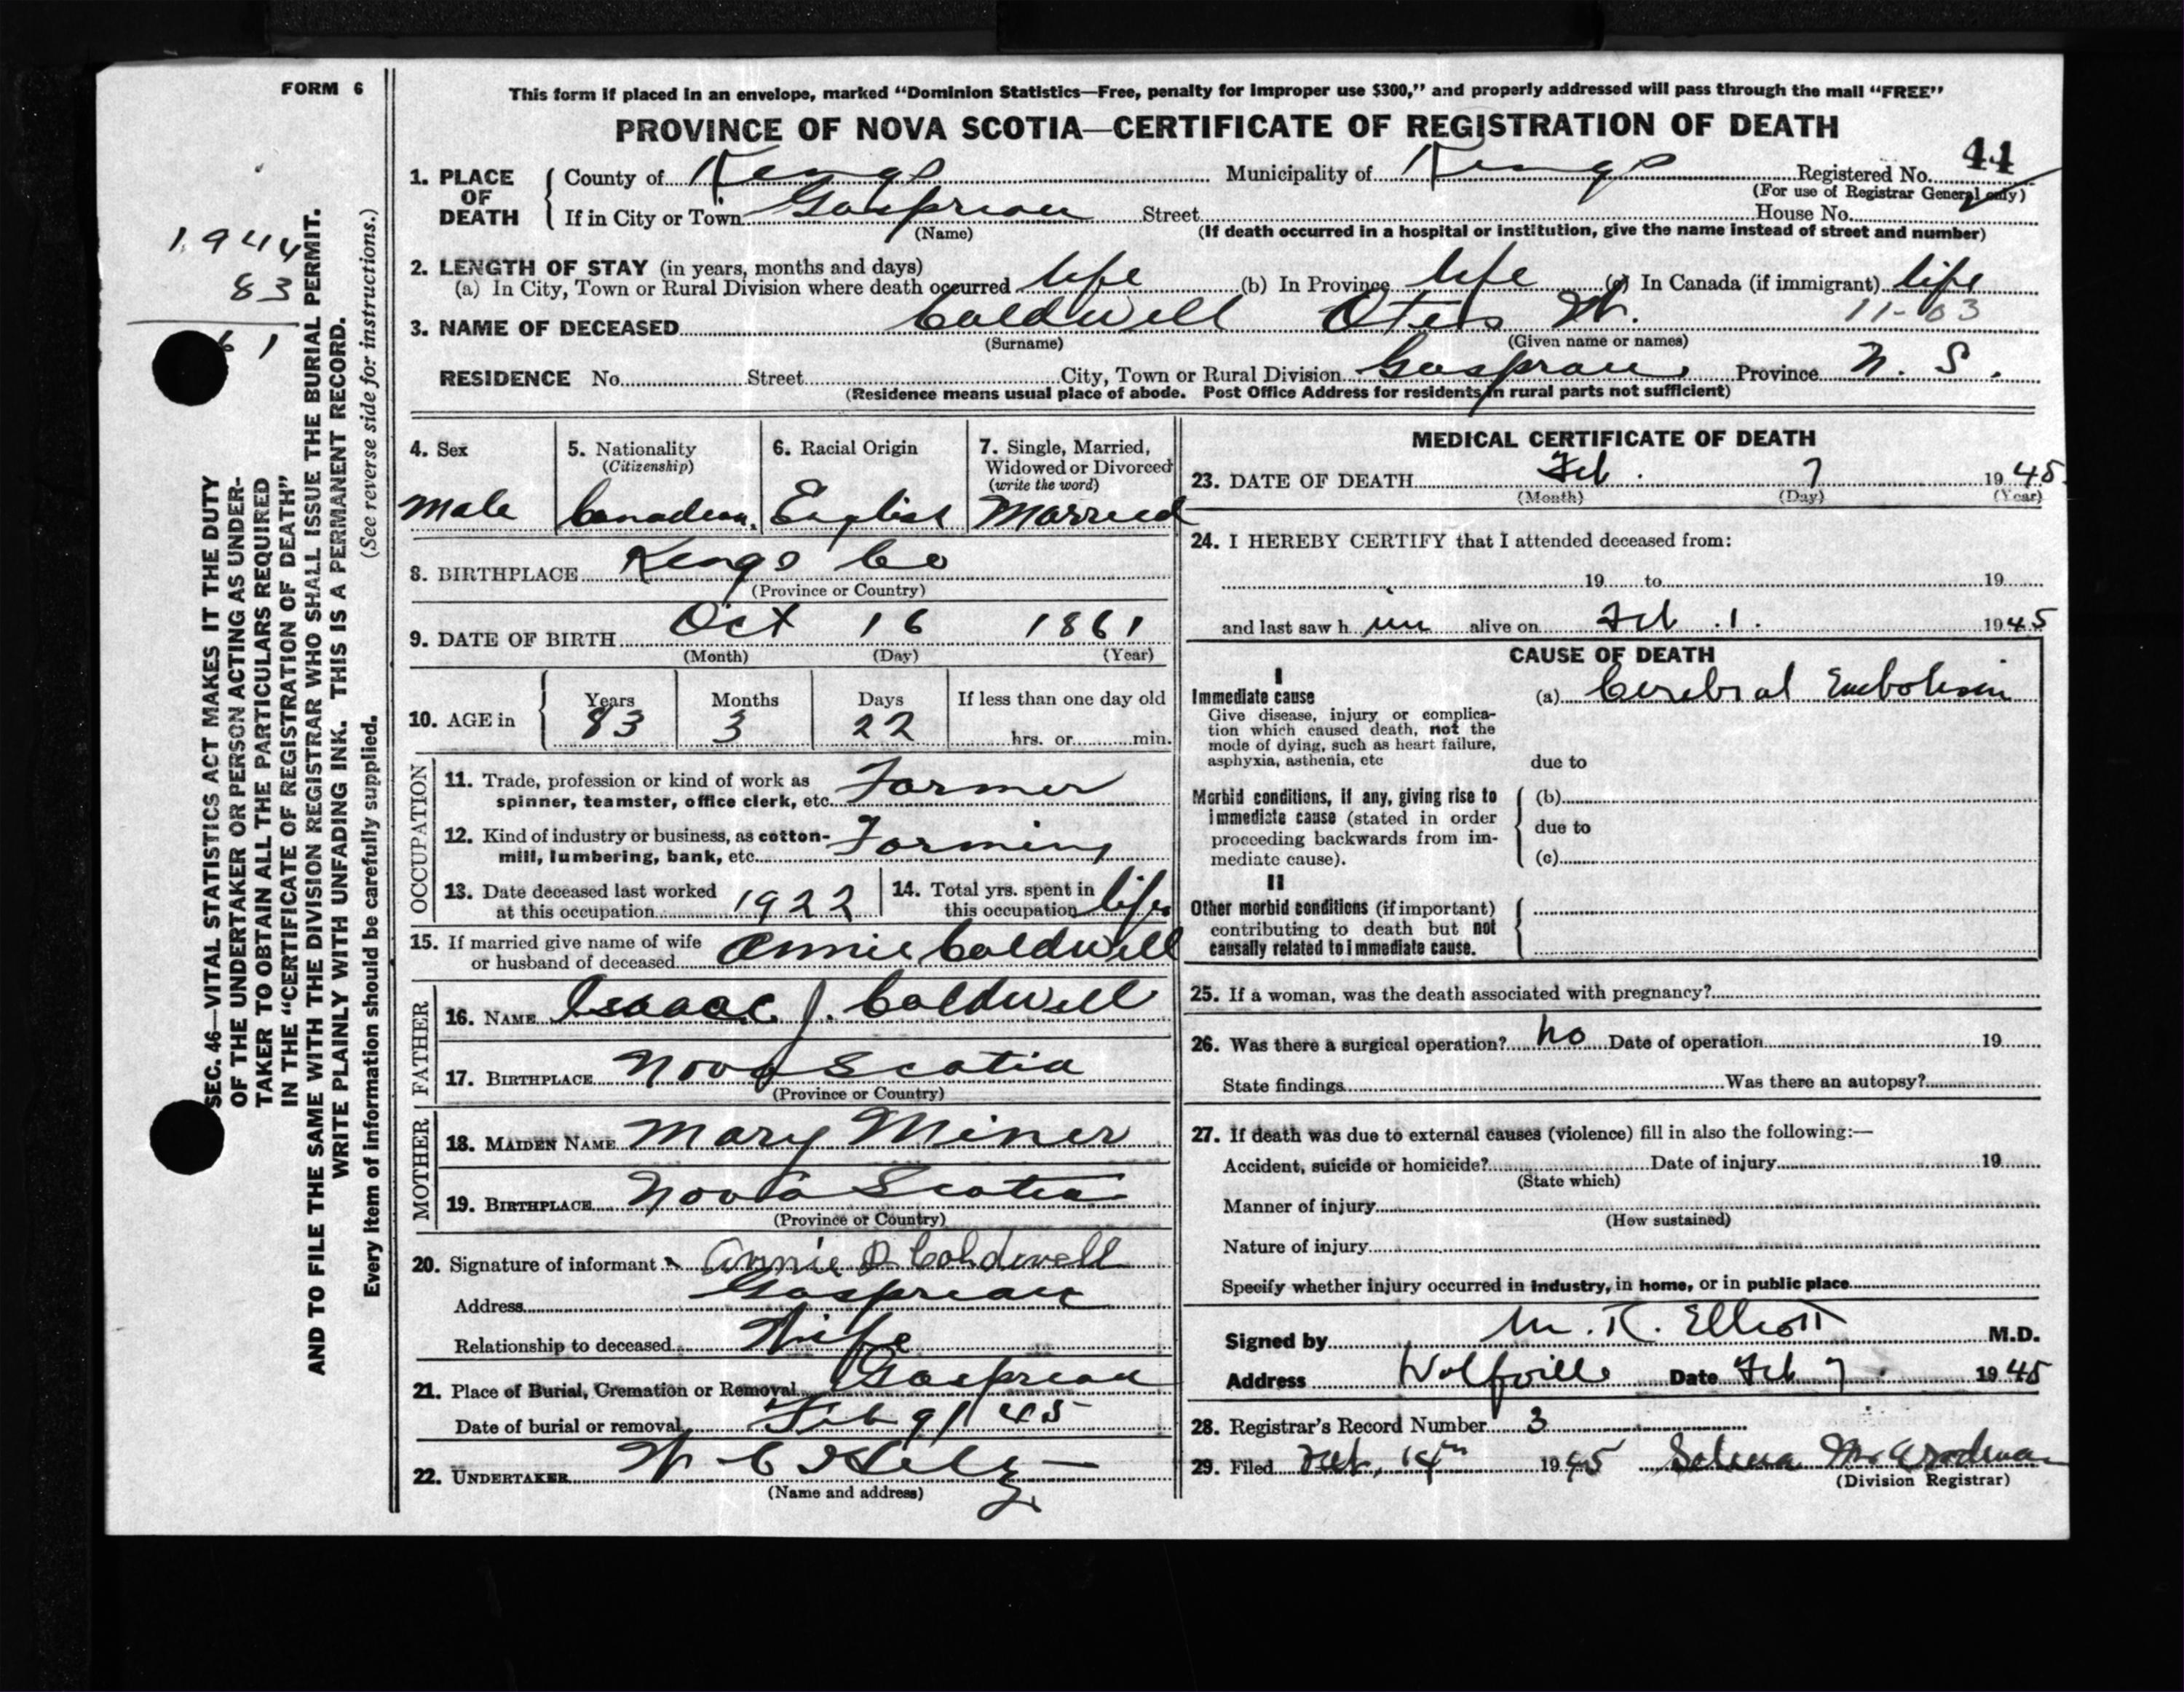 FORM 6
This form if placed in an envelope, marked "Dominion Statistics—Free, penalty for improper use $300," and properly addressed will pass through the mail "FREE"
PROVINCE OF NOVA SCOTIA—CERTIFICATE OF REGISTRATION OF DEATH
44
1. PLACE OF DEATH County of Kings Municipality of Kings Registered No.
(For use of Registrar General only)
If in City or Town Gaspreau Street House No.
(Name) (If death occurred in a hospital or institution, give the name instead of street and number)
2. LENGTH OF STAY (in years, months and days)
(a) In City, Town or Rural Division where death occurred life (b) In Province life (c) In Canada (if immigrant) life
3. NAME OF DECEASED Coldwell Otis W. 11-03
(Surname) (Given name or names)
RESIDENCE No. Street City, Town or Rural Division Gaspreau Province N. S.
(Residence means usual place of abode. Post Office Address for residents in rural parts not sufficient)
4. Sex 5. Nationality 6. Racial Origin 7. Single, Married,
(Citizenship) Widowed or Divorced
(write the word)
Male Canadian. English Married
8. BIRTHPLACE Kings Co
(Province or Country)
9. DATE OF BIRTH Oct 16 1861
(Month) (Day) (Year)
10. AGE in Years Months Days If less than one day old
83 3 22 hrs. or min.
OCCUPATION
11. Trade, profession or kind of work as
spinner, teamster, office clerk, etc. Farmer
12. Kind of industry or business, as cotton-
mill, lumbering, bank, etc. Farming
13. Date deceased last worked
at this occupation 1922
14. Total yrs. spent in
this occupation life
15. If married give name of wife
or husband of deceased Annie Coldwell
FATHER
16. NAME Isaac J. Coldwell
17. BIRTHPLACE Nova Scotia
(Province or Country)
MOTHER
18. MAIDEN NAME Mary Miner
19. BIRTHPLACE Nova Scotia
(Province or Country)
20. Signature of informant Annie D Coldwell
Address Gaspreau
Relationship to deceased Wife
21. Place of Burial, Cremation or Removal Gaspreau
Date of burial or removal Feb 9/45
22. UNDERTAKER W C
(Name and address)
MEDICAL CERTIFICATE OF DEATH
23. DATE OF DEATH Feb. 7 1945
(Month) (Day) (Year)
24. I HEREBY CERTIFY that I attended deceased from:
19 to 19
and last saw him alive on Feb. 1. 1945
CAUSE OF DEATH
I
Immediate cause (a) Cerebral Embolism
Give disease, injury or complica-
tion which caused death, not the
mode of dying, such as heart failure,
asphyxia, asthenia, etc due to
Morbid conditions, if any, giving rise to (b)
immediate cause (stated in order due to
proceeding backwards from im-
mediate cause). (c)
II
Other morbid conditions (if important)
contributing to death but not
causally related to immediate cause.
25. If a woman, was the death associated with pregnancy?
26. Was there a surgical operation? no Date of operation 19
State findings Was there an autopsy?
27. If death was due to external causes (violence) fill in also the following:—
Accident, suicide or homicide? Date of injury 19
(State which)
Manner of injury
(How sustained)
Nature of injury
Specify whether injury occurred in industry, in home, or in public place
Signed by M. R. Elliott M.D.
Address Wolfville Date Feb 7. 1945
28. Registrar's Record Number 3
29. Filed Feb. 14th 1945 Selena M.
(Division Registrar)
1944
83
61
SEC. 46—VITAL STATISTICS ACT MAKES IT THE DUTY
OF THE UNDERTAKER OR PERSON ACTING AS UNDER-
TAKER TO OBTAIN ALL THE PARTICULARS REQUIRED
IN THE "CERTIFICATE OF REGISTRATION OF DEATH"
AND TO FILE THE SAME WITH THE DIVISION REGISTRAR WHO SHALL ISSUE THE BURIAL PERMIT.
WRITE PLAINLY WITH UNFADING INK. THIS IS A PERMANENT RECORD.
Every item of information should be carefully supplied. (See reverse side for instructions.)